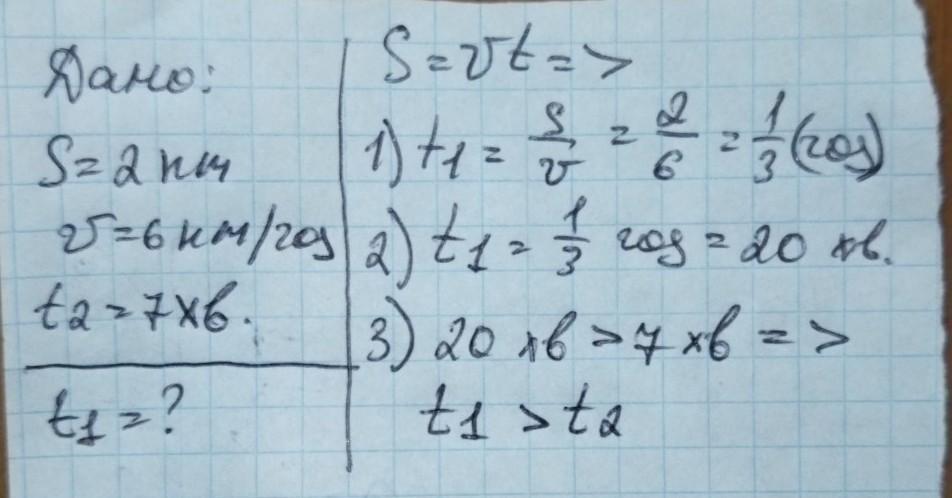 Дано:
S=2 км
v=6 км/год
t2=7 хв.
t1=?
S=vt=>
1) t1 = S/v = 2/6 = 1/3 (год)
2) t1 = 1/3 год = 20 хв.
3) 20 хв > 7 хв =>
t1 > t2